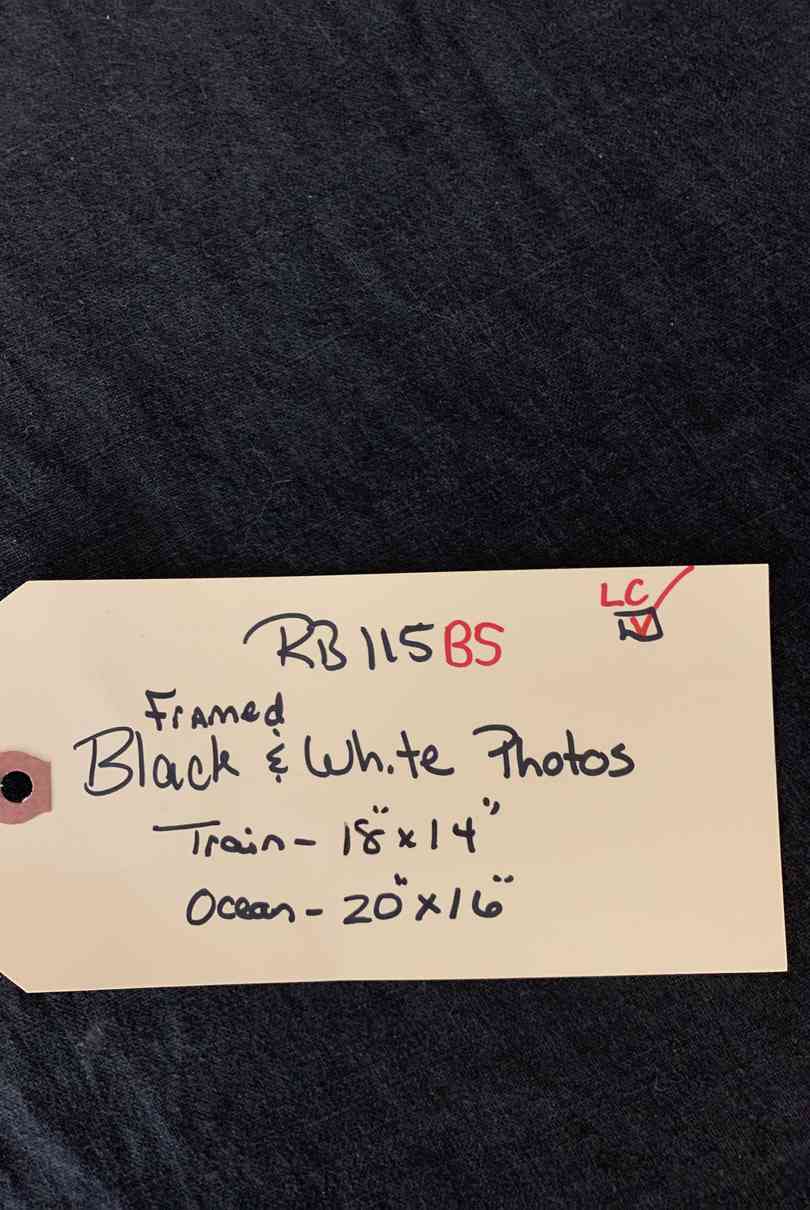 LC
RB115BS
Framed
Black & White Photos
Train - 18" x 14"
Ocean - 20" x 16"